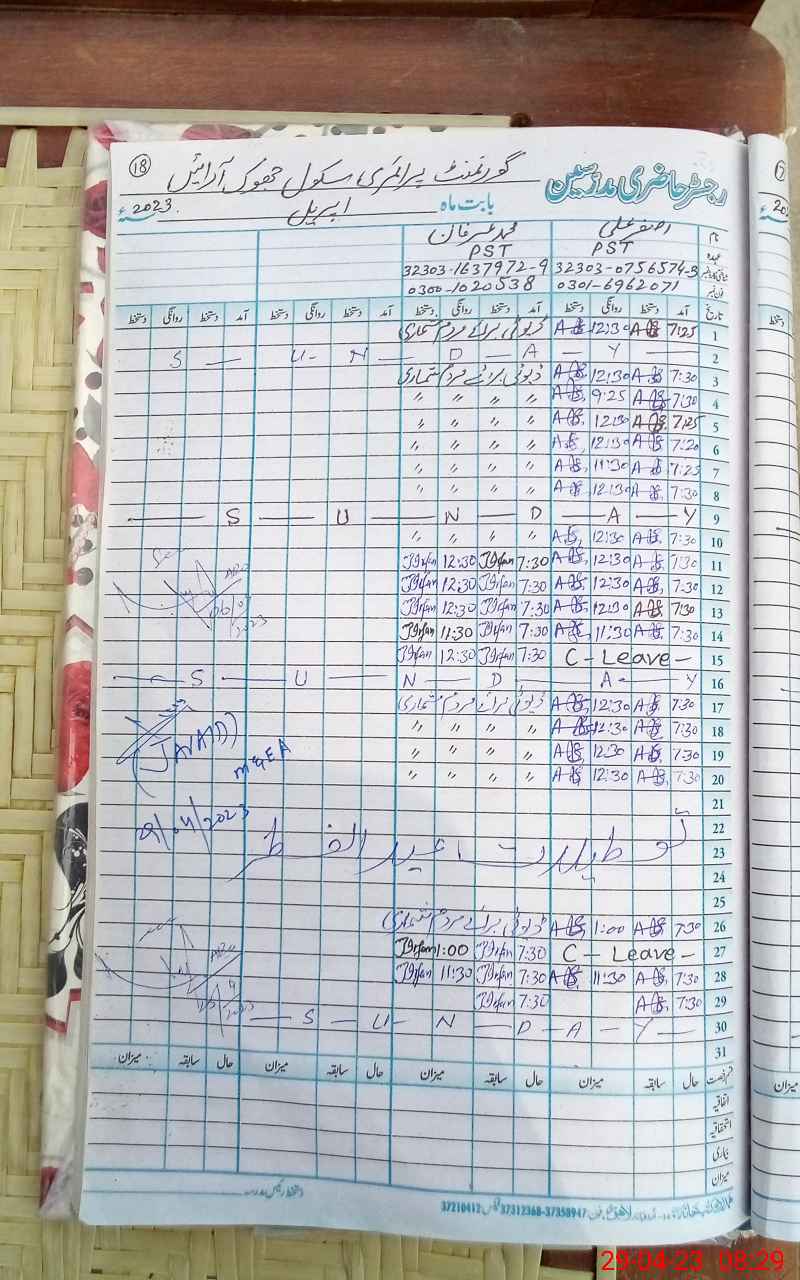 18
رجسٹر حاضری مدرسین گورنمنٹ پرائمری سکول جھوک آرائیں
بابت ماہ اپریل 2023ء
نام اصغر علی محمد عرفان
عہدہ PST PST
32303-0756574-3 32303-1637972-9
فون نمبر 0301-6962071 0300-1020538
تاریخ آمد دستخط روانگی دستخط آمد دستخط روانگی دستخط آمد دستخط روانگی دستخط آمد دستخط روانگی دستخط
1 7:25 12:30 ڈیوٹی برائے مردم شماری
2 S U N D A Y
3 7:30 12:30 ڈیوٹی برائے مردم شماری
4 7:30 9:25 〃 〃 〃 〃
5 7:25 12:30 〃 〃 〃 〃
6 7:20 12:30 〃 〃 〃 〃
7 7:25 11:30 〃 〃 〃 〃
8 7:30 12:30 〃 〃 〃 〃
9 S U N D A Y
10 7:30 12:30 〃 〃 〃 〃
11 7:30 12:30 7:30 Irfan 12:30 Irfan
12 7:30 12:30 7:30 Irfan 12:30 Irfan
13 7:30 12:30 7:30 Irfan 12:30 Irfan
14 7:30 11:30 7:30 Irfan 11:30 Irfan
15 C - Leave - 7:30 Irfan 12:30 Irfan
16 S U N D A Y
17 7:30 12:30 ڈیوٹی برائے مردم شماری
18 7:30 12:30 〃 〃 〃 〃
19 7:30 12:30 〃 〃 〃 〃
20 7:30 12:30 〃 〃 〃 〃
JAVAID
29/04/2023
21
22
23 تعطیلات عید الفطر
24
25
26 7:30 1:00 ڈیوٹی برائے مردم شماری
27 C - Leave - 7:30 Irfan 1:00 Irfan
28 7:30 11:30 7:30 Irfan 11:30 Irfan
29 7:30 7:30 Irfan
30 S U N D A Y
31
قسم رخصت حال سابقہ میزان حال سابقہ میزان حال سابقہ میزان حال سابقہ میزان
اتفاقیہ
استحقاقیہ
بیماری
میزان
37312368-37358947 37210412
29-04-23 08:29